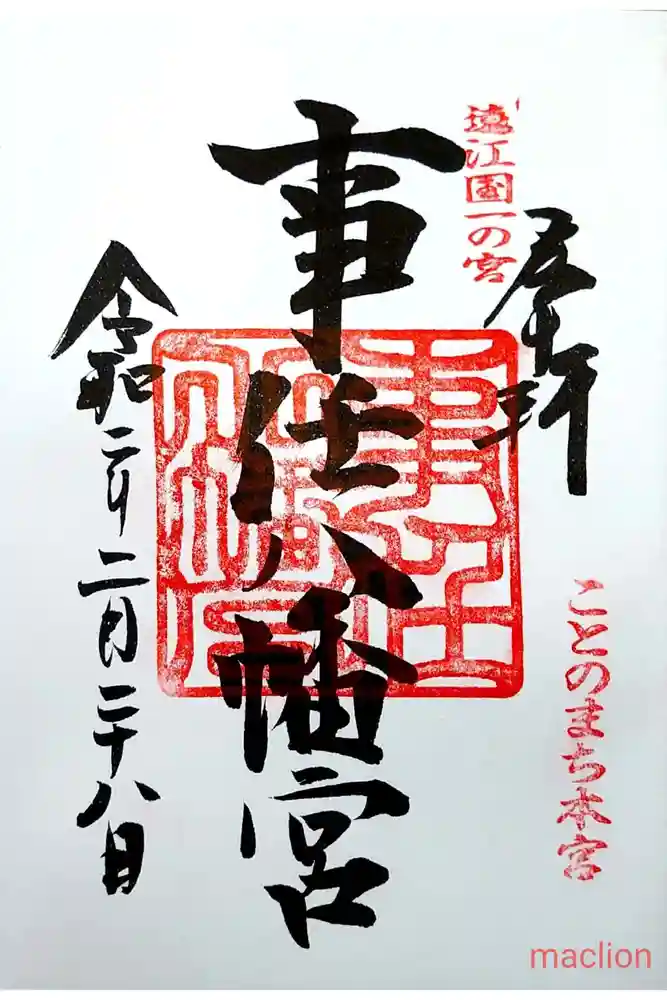 遠江国一の宮
奉拝
ことのまち本宮
事任八幡宮
令和二年二月二十八日
maclion